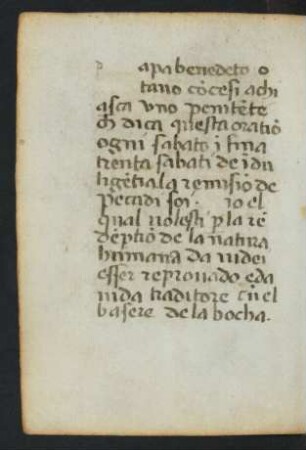 p apa benedeto o
tano cōcesi a chi
asca uno penitēte
ch̄ dica questa oratiō
ogni sabato ī fina
trenta sabati de īdu
ligētia la remisiō de
pecadi soi · io el
qual uolesti p̱ la rē
dēptiō de la natura
humana da iudei
esser reprouado e da
iuda traditore cū el
basere de la bocha.